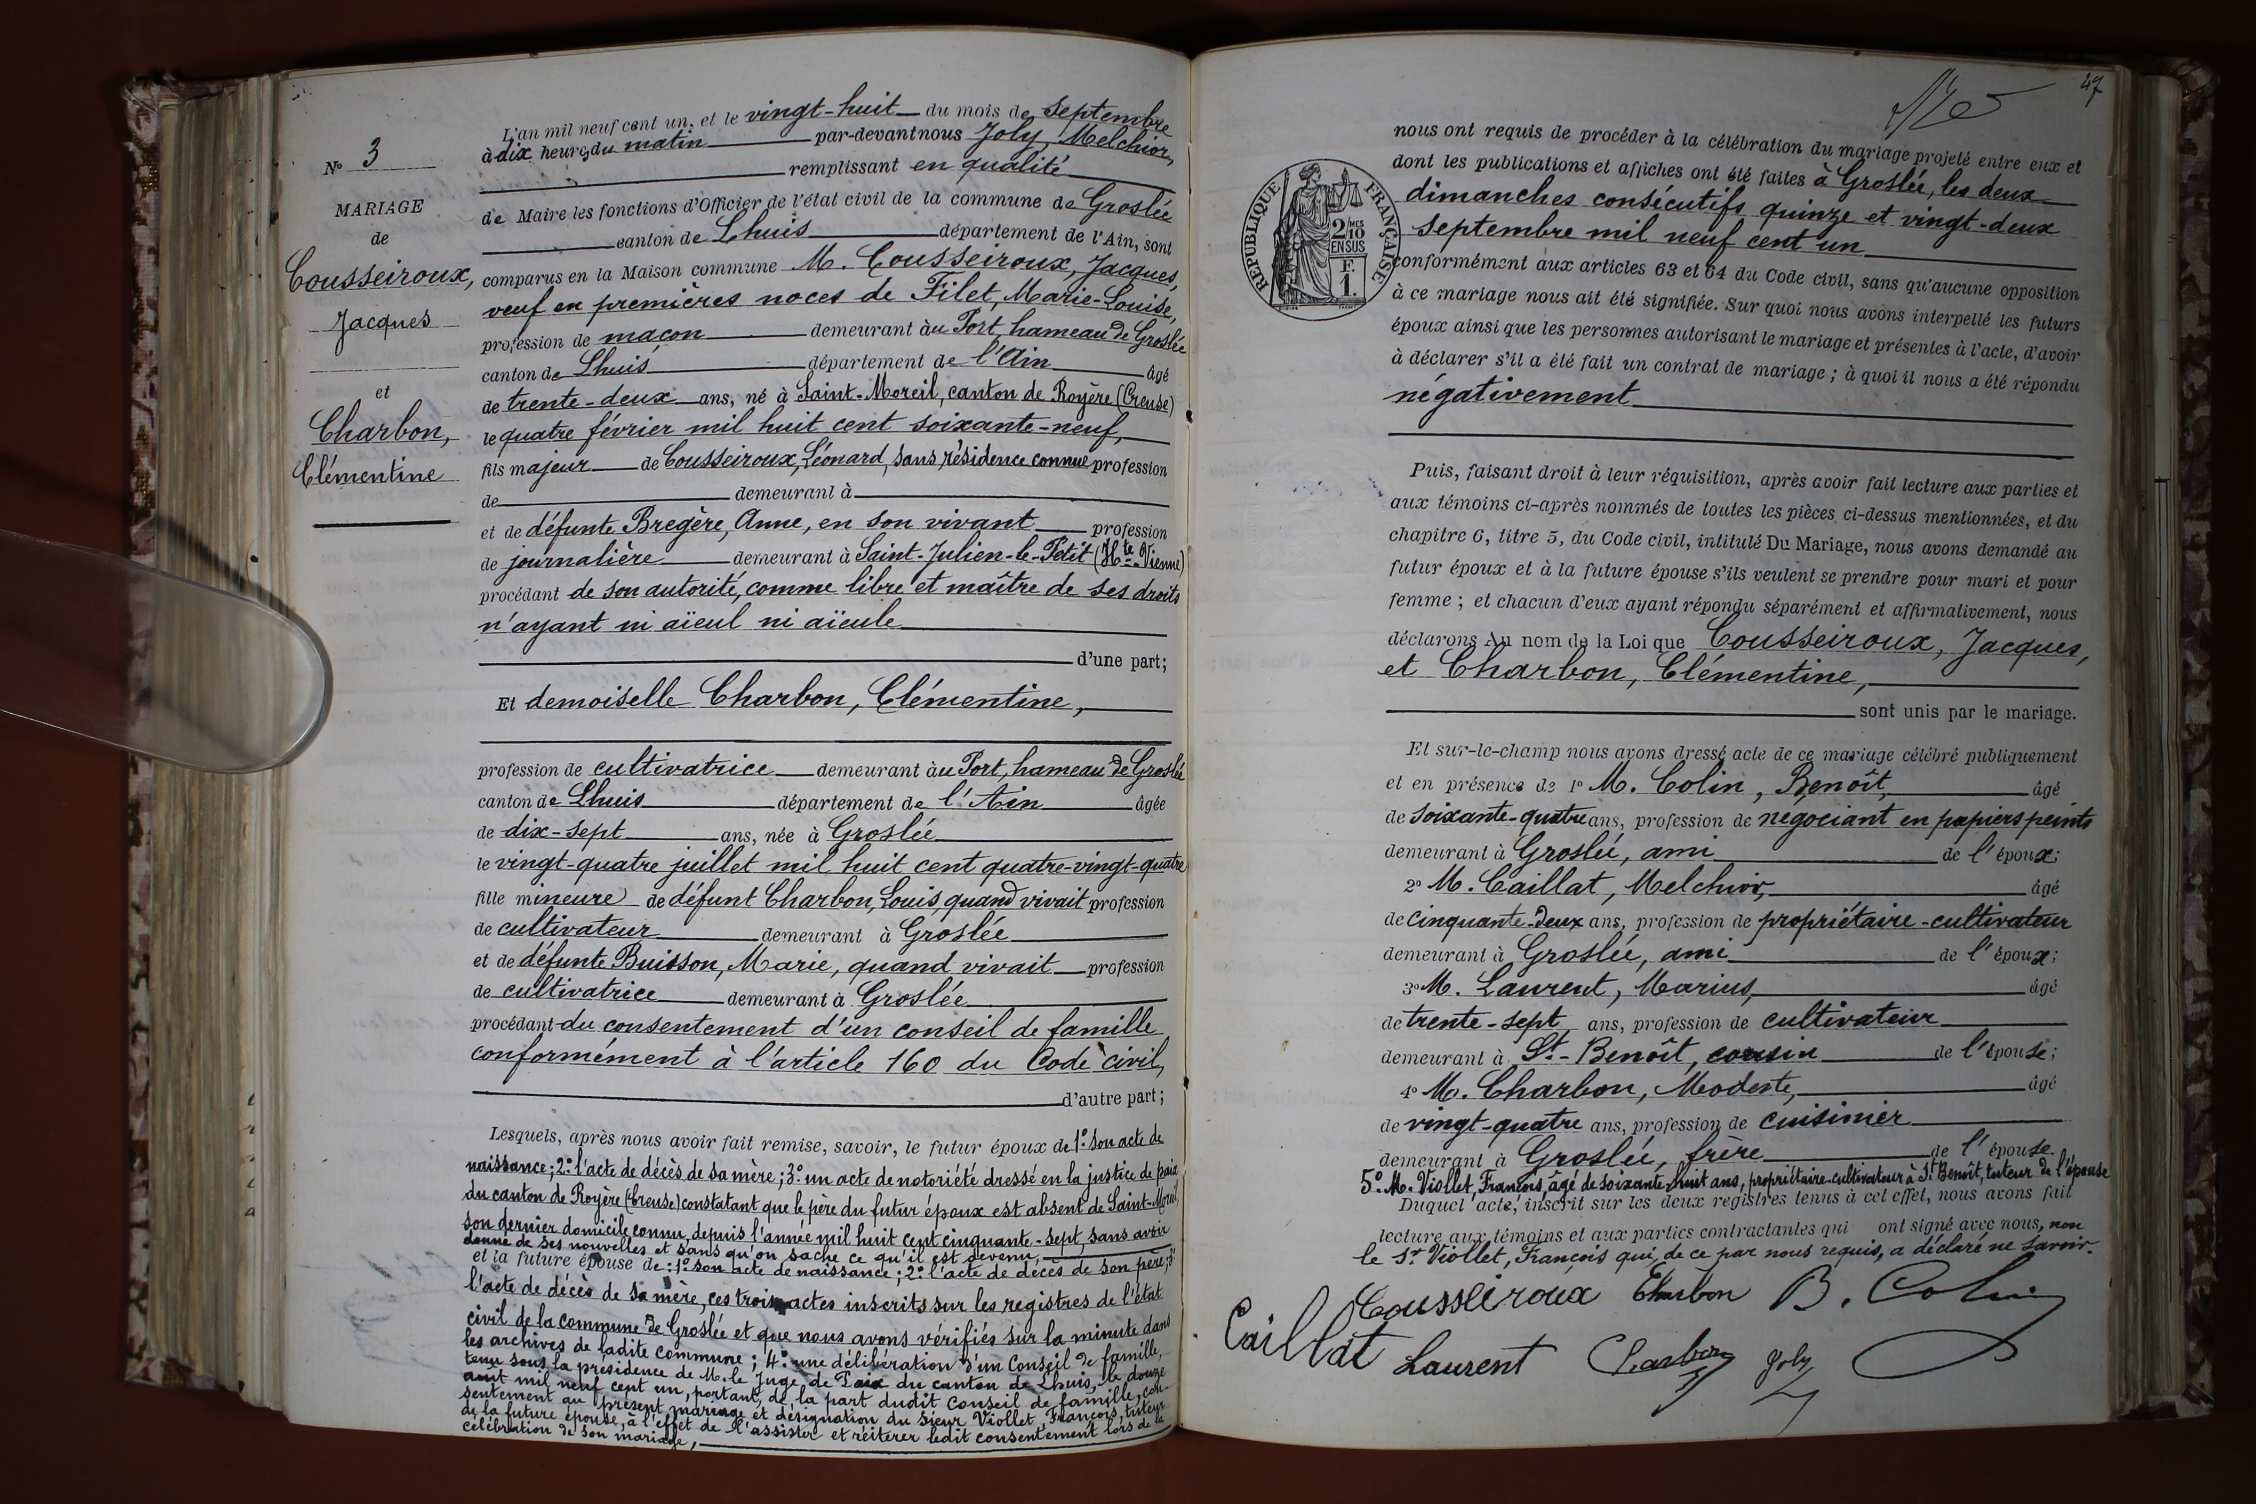 N° 3
MARIAGE
de
Cousseiroux,
Jacques
et
Charbon,
Clémentine
L'an mil neuf cent un, et le vingt-huit du mois de septembre
à dix heures du matin par-devant nous Joly, Melchior,
remplissant en qualité
de Maire les fonctions d'Officier de l'état civil de la commune de Groslée
canton de Lhuis département de l'Ain, sont
comparus en la Maison commune M. Cousseiroux, Jacques,
veuf en premières noces de Filet, Marie-Louise,
profession de maçon demeurant au Port, hameau de Groslée
canton de Lhuis département de l'Ain âgé
de trente-deux ans, né à Saint-Moreil, canton de Royère (Creuse)
le quatre février mil huit cent soixante-neuf,
fils majeur de Cousseiroux, Léonard, sans résidence connue profession
de demeurant à
et de défunte Bregère, Anne, en son vivant profession
de journalière demeurant à Saint-Julien-le-Petit (Hte-Vienne)
procédant de son autorité, comme libre et maître de ses droits
n'ayant ni aïeul ni aïeule
d'une part;
Et demoiselle Charbon, Clémentine,
profession de cultivatrice demeurant au Port, hameau de Groslée
canton de Lhuis département de l'Ain âgée
de dix-sept ans, née à Groslée
le vingt-quatre juillet mil huit cent quatre-vingt-quatre
fille mineure de défunt Charbon, Louis, quand vivait profession
de cultivateur demeurant à Groslée
et de défunte Buisson, Marie, quand vivait profession
de cultivatrice demeurant à Groslée
procédant du consentement d'un conseil de famille
conformément à l'article 160 du Code civil,
d'autre part;
Lesquels, après nous avoir fait remise, savoir, le futur époux de 1° son acte de
naissance; 2° l'acte de décès de sa mère; 3° un acte de notoriété dressé en la justice de paix
du canton de Royère (Creuse) constatant que le père du futur époux est absent de Saint-Moreil,
son dernier domicile connu, depuis l'année mil huit cent cinquante-sept, sans avoir
donné de ses nouvelles et sans qu'on sache ce qu'il est devenu,
et la future épouse de: 1° son acte de naissance; 2° l'acte de décès de son père; 3°
l'acte de décès de sa mère, ces trois actes inscrits sur les registres de l'état
civil de la commune de Groslée et que nous avons vérifiés sur la minute dans
les archives de ladite commune; 4° une délibération d'un Conseil de famille,
tenu sous la présidence de M. le Juge de Paix du canton de Lhuis, le douze
août mil neuf cent un, portant, de la part dudit Conseil de famille, con-
sentement au présent mariage et désignation du sieur Viollet, François, tuteur
de la future épouse, à l'effet de l'assister et réitérer ledit consentement lors de la
célébration de son mariage,
47
RÉPUBLIQUE FRANÇAISE
2/10 MES
EN SUS
F.
1.
nous ont requis de procéder à la célébration du mariage projeté entre eux et
dont les publications et affiches ont été faites à Groslée, les deux
dimanches consécutifs quinze et vingt-deux
septembre mil neuf cent un
conformément aux articles 63 et 64 du Code civil, sans qu'aucune opposition
à ce mariage nous ait été signifiée. Sur quoi nous avons interpellé les futurs
époux ainsi que les personnes autorisant le mariage et présentes à l'acte, d'avoir
à déclarer s'il a été fait un contrat de mariage; à quoi il nous a été répondu
négativement
Puis, faisant droit à leur réquisition, après avoir fait lecture aux parties et
aux témoins ci-après nommés de toutes les pièces ci-dessus mentionnées, et du
chapitre 6, titre 5, du Code civil, intitulé Du Mariage, nous avons demandé au
futur époux et à la future épouse s'ils veulent se prendre pour mari et pour
femme; et chacun d'eux ayant répondu séparément et affirmativement, nous
déclarons Au nom de la Loi que Cousseiroux, Jacques,
et Charbon, Clémentine,
sont unis par le mariage.
Et sur-le-champ nous avons dressé acte de ce mariage célébré publiquement
et en présence de 1° M. Colin, Benoît, âgé
de soixante-quatre ans, profession de négociant en papiers peints
demeurant à Groslée, ami de l'époux;
2° M. Caillat, Melchior, âgé
de cinquante-deux ans, profession de propriétaire-cultivateur
demeurant à Groslée, ami de l'époux;
3° M. Laurent, Marius, âgé
de trente-sept ans, profession de cultivateur
demeurant à St-Benoît, cousin de l'épouse;
4° M. Charbon, Modeste, âgé
de vingt-quatre ans, profession de cuisinier
demeurant à Groslée, frère de l'épouse.
5° M. Viollet, François, âgé de soixante-huit ans, propriétaire-cultivateur à St Benoît, tuteur de l'épouse
Duquel acte, inscrit sur les deux registres tenus à cet effet, nous avons fait
lecture aux témoins et aux parties contractantes qui ont signé avec nous, non
le Sr Viollet, François qui, de ce par nous requis, a déclaré ne savoir.
Cousseiroux Charbon B. Colin
Caillat Laurent Charbon Joly